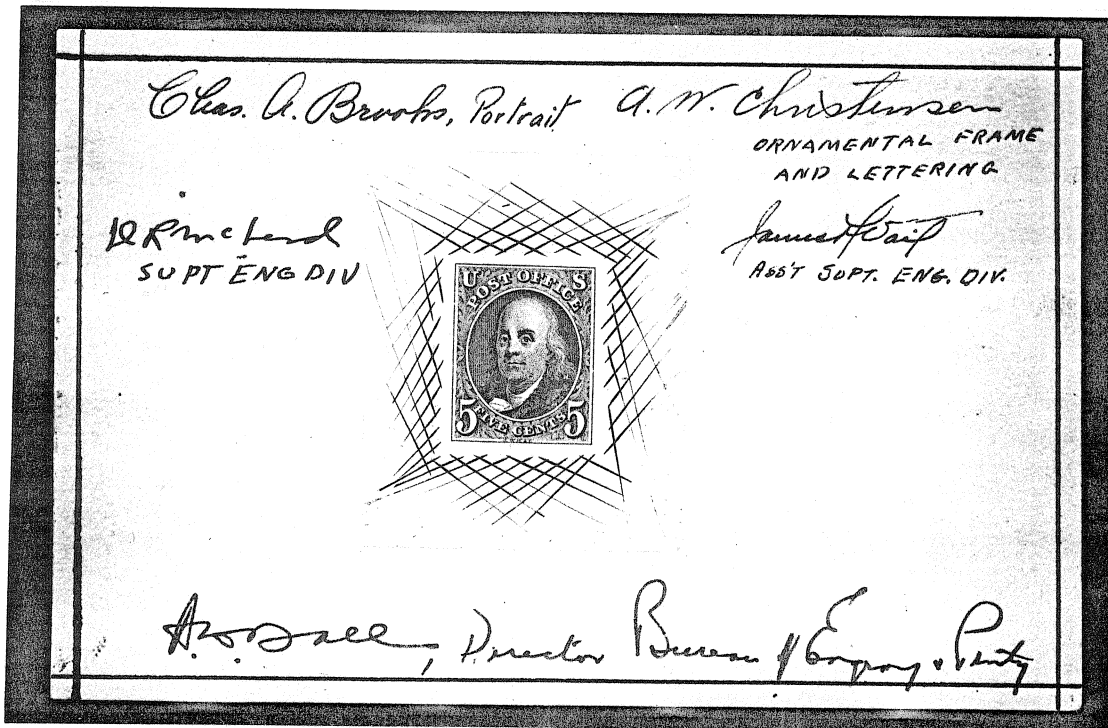 Chas. A. Brooks, Portrait
A. W. Christensen
ORNAMENTAL FRAME
AND LETTERING
SUPT ENG DIV
James Vail
ASS'T SUPT. ENG. DIV.
U S
POST OFFICE
5 FIVE CENTS 5
A. W. Hall, Director Bureau of Engrav. & Printg